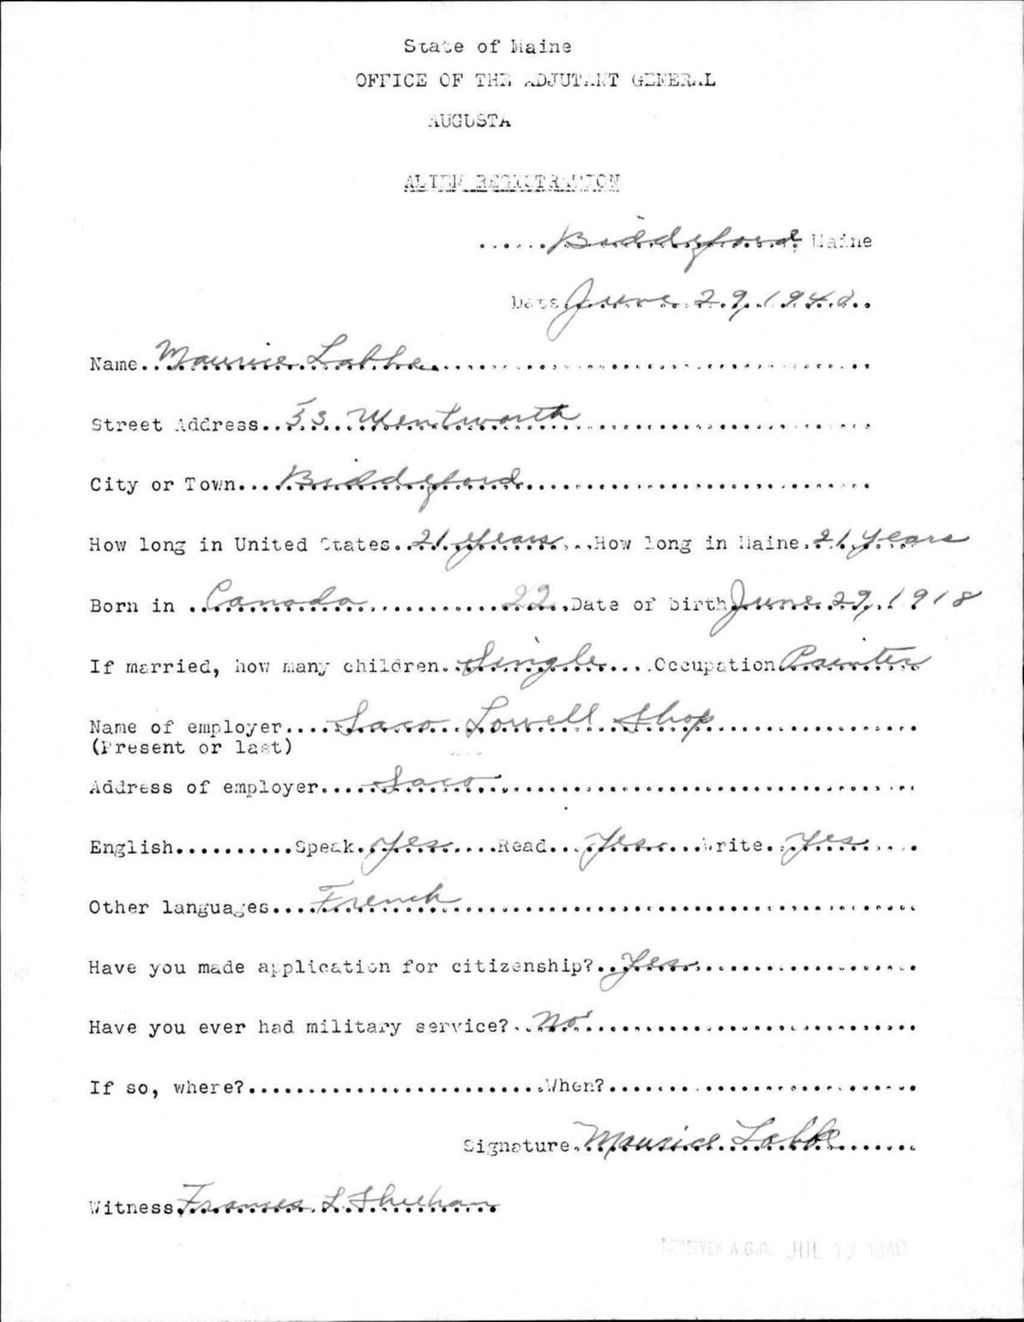 State of Maine
OFFICE OF THE ADJUTANT GENERAL
AUGUSTA
ALIEN REGISTRATION
......Biddeford, Maine
Date June 29, 1940..
Name..Maurice Labbe
Street Address..33 Wentworth
City or Town...Biddeford
How long in United States..21 years...How long in Maine.21 years
Born in ..Canada............22...Date of birth June 29, 1918
If married, how many children..Single....Occupation Painter
Name of employer....Saco Lowell Shop
(Present or last)
Address of employer....Saco
English..........Speak.Yes....Read...Yes...Write.Yes
Other languages...French
Have you made application for citizenship?..Yes
Have you ever had military service?..No
If so, where?.........................When?
Signature.Maurice Labbe
Witness Frances L Sheehan
RECEIVED A.G.O. JUL 12 1940